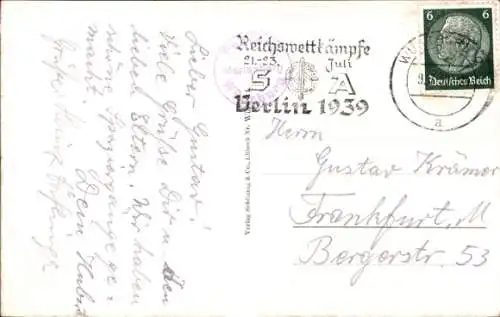 Lieber Gustav!
Viele Grüße Dir u. den
lieben Eltern. Wir haben
schöne Spaziergänge ge-
macht. Dein Hubert
Grüße
Reichswettkämpfe
21.-23. Juli
SA
Berlin 1939
6 6
Deutsches Reich
a
Herrn
Gustav Krämer
Frankfurt, M
Bergerstr. 53
Verlag Schöning & Co., Lübeck